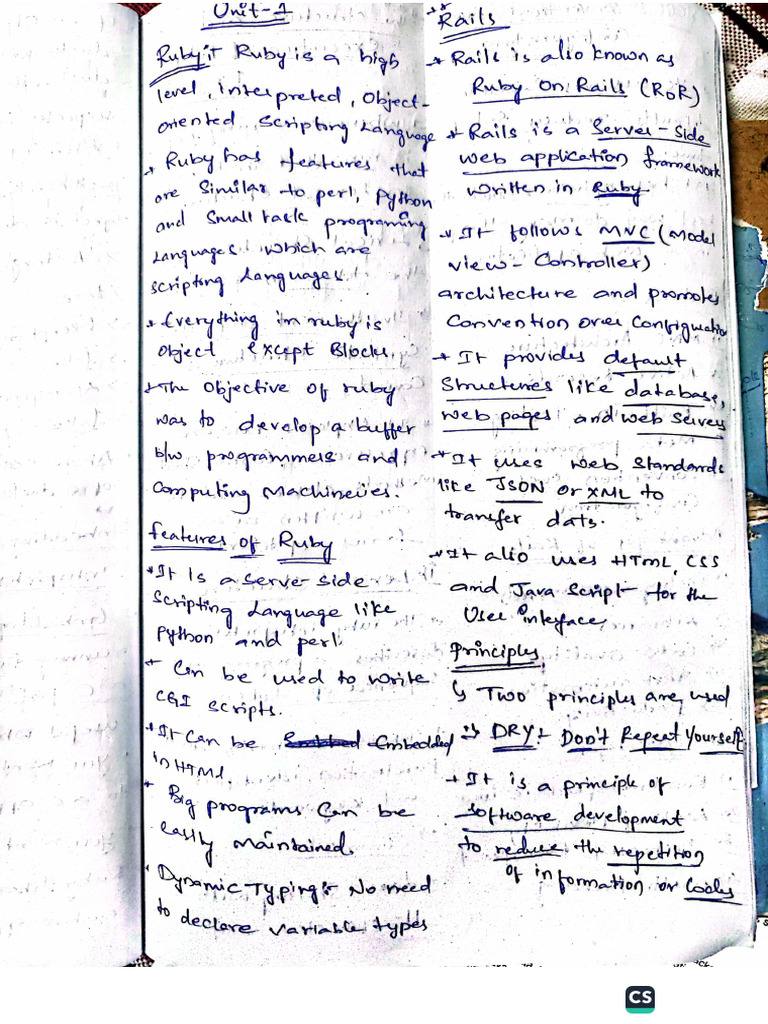 Unit-1
Ruby :- Ruby is a high
level, interpreted, Object-
oriented scripting Language
* Ruby has features that
are similar to perl, Python
and Small task programing
Languages which are
scripting Languages.
* Everything in ruby is
Object except Blocks.
* The objective of ruby
was to develop a buffer
b/w programmers and
Computing Machineries.
features of Ruby
* It is a server-side
Scripting Language like
Python and perl.
* Can be used to write
CGI scripts.
* It Can be Embedded
in HTML.
* Big programs Can be
easily maintained.
* Dynamic Typing :- No need
to declare variable types
Rails
* Rails is also known as
Ruby On Rails (RoR)
* Rails is a Server-Side
web application framework
written in Ruby
* It follows MVC (Model
View - Controller)
architecture and promotes
Convention over Configuration
* It provides default
Structures like database,
web pages and web servers
* It uses web standards
like JSON or XML to
transfer data.
* It also uses HTML, CSS
and Java Script for the
User interface
Principles
↳ Two principles are used
DRY :- Don't Repeat Yourself
* It is a principle of
software development
to reduce the repetition
of information or Codes
CS